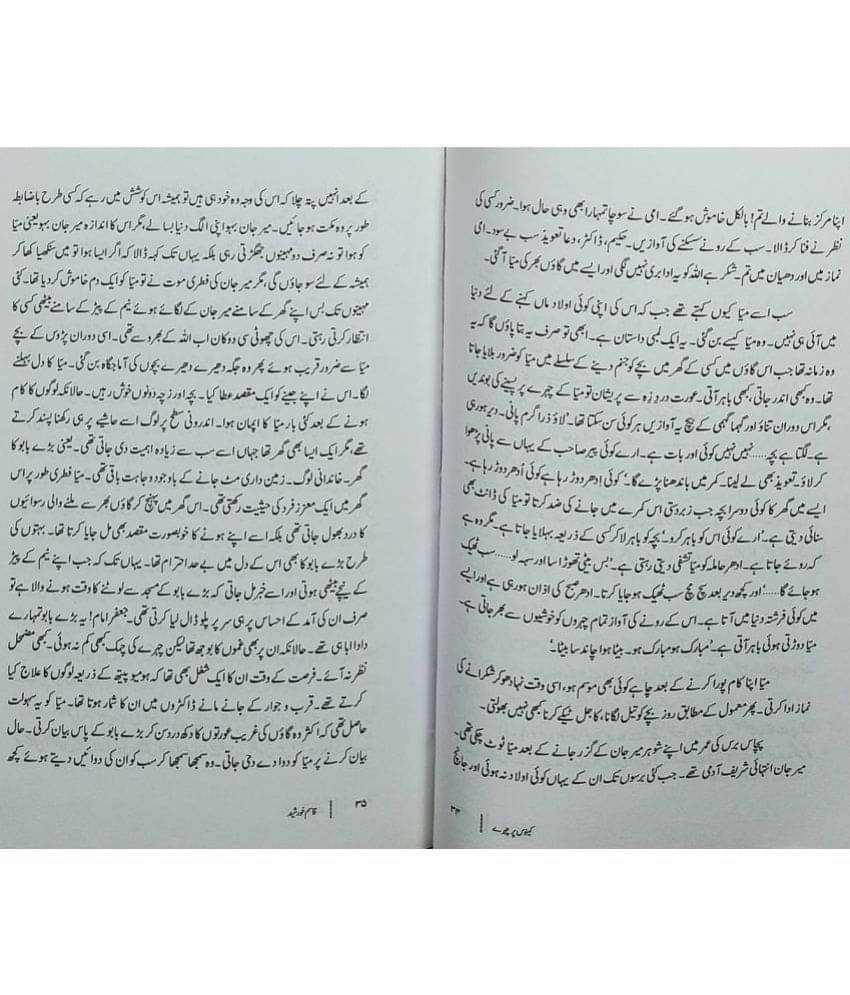 اپنا مرکز بنانے والے تم! بالکل خاموش ہو گئے۔ امی نے سوچا تمہارا بھی وہی حال ہوا۔ ضرور کسی کی
نظر نے فنا کر ڈالا۔ سب کے رونے سسکنے کی آوازیں۔ حکیم، ڈاکٹر، دعا تعویذ سب بے سود۔ امی
نماز میں اور دھیان میں تم۔ شکر ہے اللہ کو یہ ادا بری نہیں لگی اور ایسے میں گاؤں بھر کی میّا آ گئی۔
سب اسے میّا کیوں کہتے تھے جب کہ اس کی اپنی کوئی اولاد ماں کہنے کے لئے دنیا
میں آئی ہی نہیں۔ وہ میّا کیسے بن گئی۔ یہ ایک لمبی داستان ہے۔ ابھی تو صرف یہ بتا پاؤں گا کہ یہ
وہ زمانہ تھا جب اس گاؤں میں کسی کے گھر میں بچے کو جنم دینے کے سلسلے میں میّا کو ضرور بلایا جاتا
تھا۔ وہ کبھی اندر جاتی، کبھی باہر آتی۔ عورت درد زہ سے پریشان تو میّا کے چہرے پر پسینے کی بوندیں
،مگر اس دوران تناؤ اور گہما گہمی کے بیچ یہ آوازیں ہر کوئی سن سکتا تھا۔ 'لاؤ ذرا گرم پانی۔ دیر ہو رہی
ہے۔ لگتا ہے بچہ ...... نہیں نہیں کوئی اور بات ہے۔ ارے کوئی پیر صاحب کے یہاں سے پانی پڑھوا
کر لاؤ۔ تعویذ بھی لے لینا۔ کمر میں باندھنا پڑے گا۔' کوئی ادھر دوڑ رہا ہے کوئی اُدھر دوڑ رہا ہے۔
ایسے میں گھر کا کوئی دوسرا بچہ جب زبردستی اس کمرے میں جانے کی ضد کرتا تو میّا کی ڈانٹ بھی
سنائی دیتی ہے۔ 'ارے کوئی اس کو باہر کرو۔' بچہ کو باہر لا کر کسی کے ذریعہ بہلایا جاتا ہے۔ مگر وہ ہے
کہ روئے جاتا ہے۔ ادھر حاملہ کو میّا تشفی دیتی رہتی ہے۔ 'بس بیٹی تھوڑا سا اور سہہ لو ...... سب ٹھیک
ہو جائے گا ......' اور کچھ دیر بعد سچ مچ سب ٹھیک ہو جایا کرتا۔ ادھر صبح کی اذان ہو رہی ہے اور ایسے
میں کوئی فرشتہ دنیا میں آتا ہے۔ اس کے رونے کی آواز تمام چہروں کو خوشیوں سے بھر جاتی ہے۔
میّا دوڑتی ہوئی باہر آتی ہے۔ 'مبارک ہو مبارک ہو۔ بیٹا ہوا چاند سا بیٹا۔'
میّا اپنا کام پورا کرنے کے بعد چاہے کوئی بھی موسم ہو، اسی وقت نہا دھو کر شکرانے کی
نماز ادا کرتی۔ پھر معمول کے مطابق روز بچے کو تیل لگانا، کاجل ٹیکے کرنا کبھی نہیں بھولتی۔
پچاس برس کی عمر میں اپنے شوہر میر جان کے گزر جانے کے بعد میّا ٹوٹ چکی تھی۔
میر جان انتہائی شریف آدمی تھے۔ جب کئی برسوں تک ان کے یہاں کوئی اولاد نہ ہوئی اور جانچ
کینوس پر چہرے | ۳۴
کے بعد انہیں پتہ چلا کہ اس کی وجہ وہ خود ہی ہیں تو ہمیشہ اس کوشش میں رہے کہ کسی طرح باضابطہ
طور پر وہ مکت ہو جائیں۔ میر جان بہو اپنی الگ دنیا بسا لے، مگر اس کا اندازہ میر جان بہو یعنی میّا
کو ہوا تو نہ صرف دو مہینوں جھگڑتی رہی بلکہ یہاں تک کہہ ڈالا کہ اگر ایسا ہوا تو میں سنکھیا کھا کر
ہمیشہ کے لئے سو جاؤں گی، مگر میر جان کی فطری موت نے تو میّا کو ایک دم خاموش کر دیا تھا۔ کئی
مہینوں تک بس اپنے گھر کے سامنے میر جان کے لگائے ہوئے نیم کے پیڑ کے سامنے بیٹھی کسی کا
انتظار کرتی رہتی۔ اس کی چھوٹی سی دوکان اب اللہ کے بھروسے تھی۔ اسی دوران پڑوس کے بچے
میّا سے ضرور قریب ہوئے پھر وہ جگہ دھیرے دھیرے بچوں کی آماجگاہ بن گئی۔ میّا کا دل بہلنے
لگا۔ اس نے اپنے جینے کو ایک مقصد عطا کیا۔ بچہ اور زچہ دونوں خوش رہیں۔ حالانکہ لوگوں کا کام
ہونے کے بعد کئی بار میّا کا اپمان ہوا۔ اندرونی سطح پر لوگ اسے حاشیے پر ہی رکھنا پسند کرتے
تھے، مگر ایک ایسا بھی گھر تھا جہاں اسے سب سے زیادہ اہمیت دی جاتی تھی۔ یعنی بڑے بابو کا
گھر۔ خاندانی لوگ۔ زمین داری مٹ جانے کے باوجود وجاہت باقی تھی۔ میّا فطری طور پر اس
گھر میں ایک معزز فرد کی حیثیت رکھتی تھی۔ اس گھر میں پہنچ کر گاؤں بھر سے ملنے والی رسوائیوں
کا درد بھول جاتی تھی بلکہ اسے اپنے ہونے کا خوبصورت مقصد بھی مل جایا کرتا تھا۔ بہتوں کی
طرح بڑے بابو کا بھی اس کے دل میں بے حد احترام تھا۔ یہاں تک کہ جب اپنے نیم کے پیڑ
کے نیچے بیٹھی ہوتی اور اسے خبر مل جاتی کہ بڑے بابو کے مسجد سے لوٹنے کا وقت ہونے والا ہے تو
صرف ان کی آمد کے احساس پر ہی سر پر پلو ڈال لیا کرتی تھی۔ جعفر امام! یہ بڑے بابو تمہارے
دادا ابا ہی تھے۔ حالانکہ ان پر بھی غموں کا بوجھ تھا لیکن چہرے کی چمک کبھی کم نہ ہوئی۔ کبھی مضمحل
نظر نہ آئے۔ فرصت کے وقت ان کا ایک شغل بھی تھا کہ ہومیو پیتھ کے ذریعہ لوگوں کا علاج کیا
کرتے تھے۔ قرب و جوار کے جانے مانے ڈاکٹروں میں ان کا شمار ہوتا تھا۔ میّا کو یہ سہولت
حاصل تھی کہ اکثر وہ گاؤں کی غریب عورتوں کا دکھ درد سن کر بڑے بابو کے پاس بیان کرتی۔ حال
بیان کرنے پر میّا کو دوا دے دی جاتی۔ وہ سمجھا سمجھا کر سب کو ان کی دوائیں دیتے ہوئے کچھ
۳۵ | قاسم خورشید